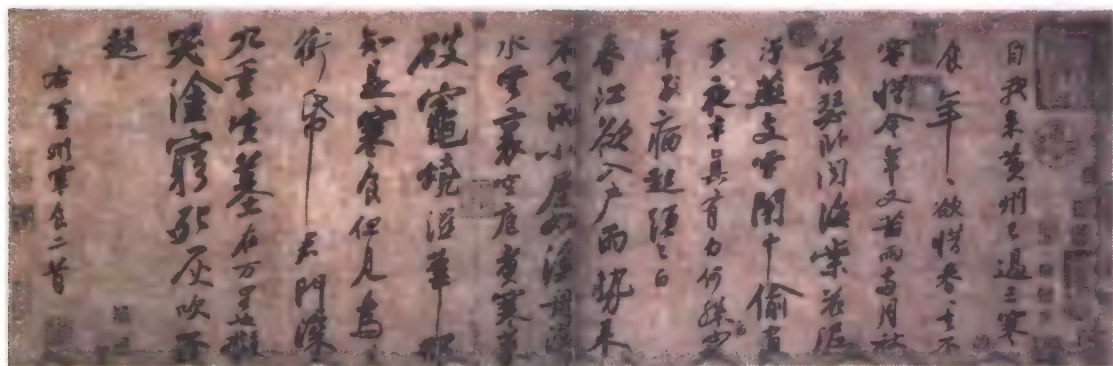 自我来黃州已過三寒
食年、欲惜春、去不
容惜今年又苦雨兩月秋
蕭瑟卧聞海棠花泥
汙燕支雪闇中偷負
去夜半真有力何殊少
年子病起頭已白
春江欲入戶雨勢来
不已雨小屋如漁舟濛
水雲裏空庖煮寒菜
破竈燒濕葦那
知是寒食但見烏
銜帋君門深
九重墳墓在万里也擬
哭塗窮死灰吹不
起
右黃州寒食二首